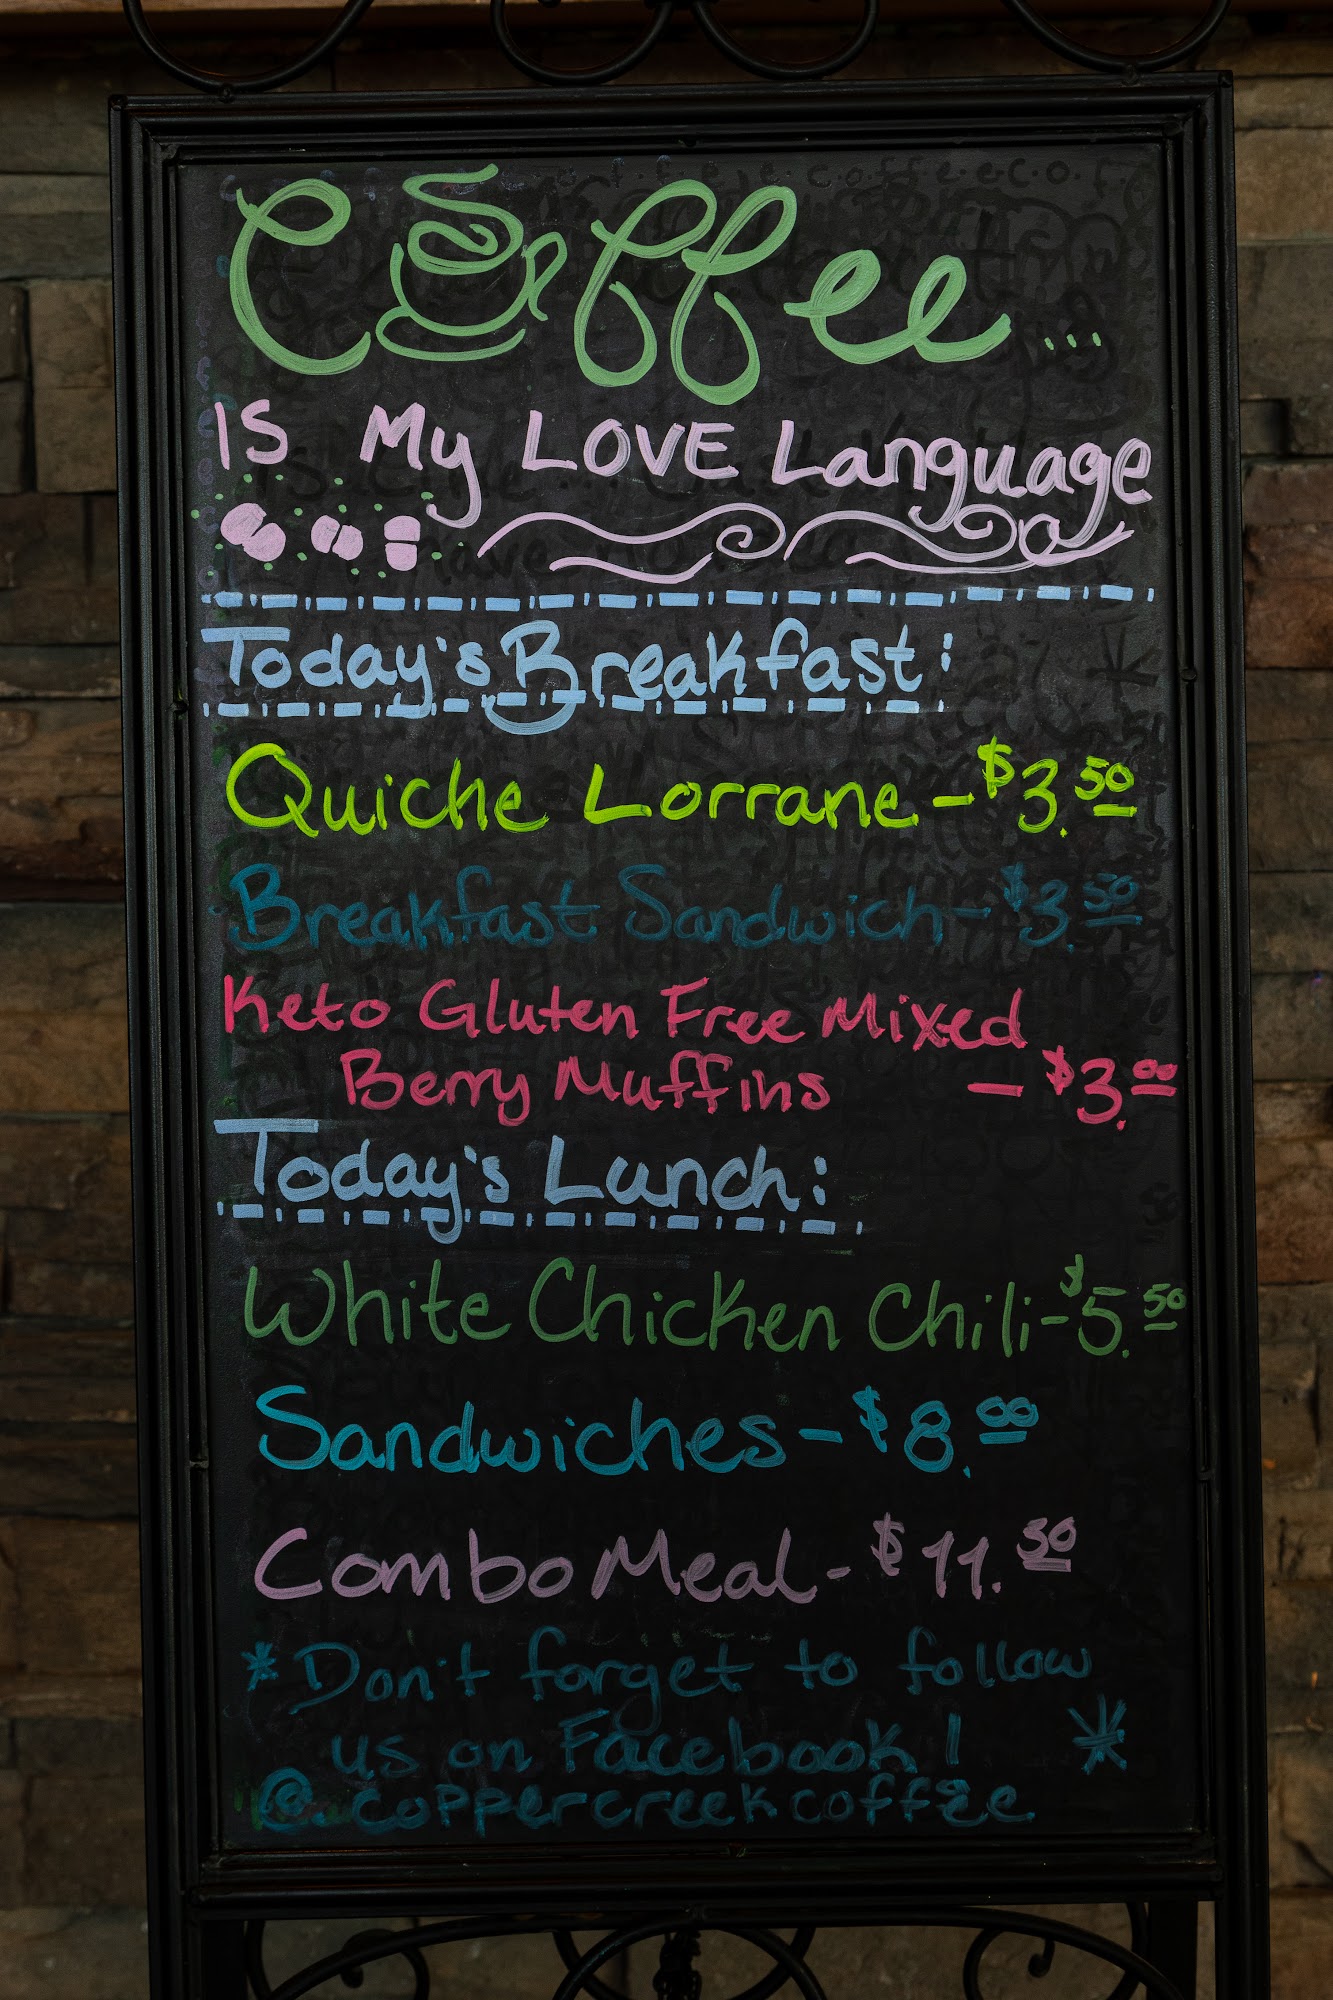 Coffee...
IS My LOVE Language
Today's Breakfast:
Quiche Lorrane - $3.50
Breakfast Sandwich - $3.50
Keto Gluten Free Mixed
Berry Muffins - $3.00
Today's Lunch:
White Chicken Chili - $5.50
Sandwiches - $8.00
Combo Meal - $11.50
*Don't forget to follow
us on Facebook! *
@coppercreekcoffee